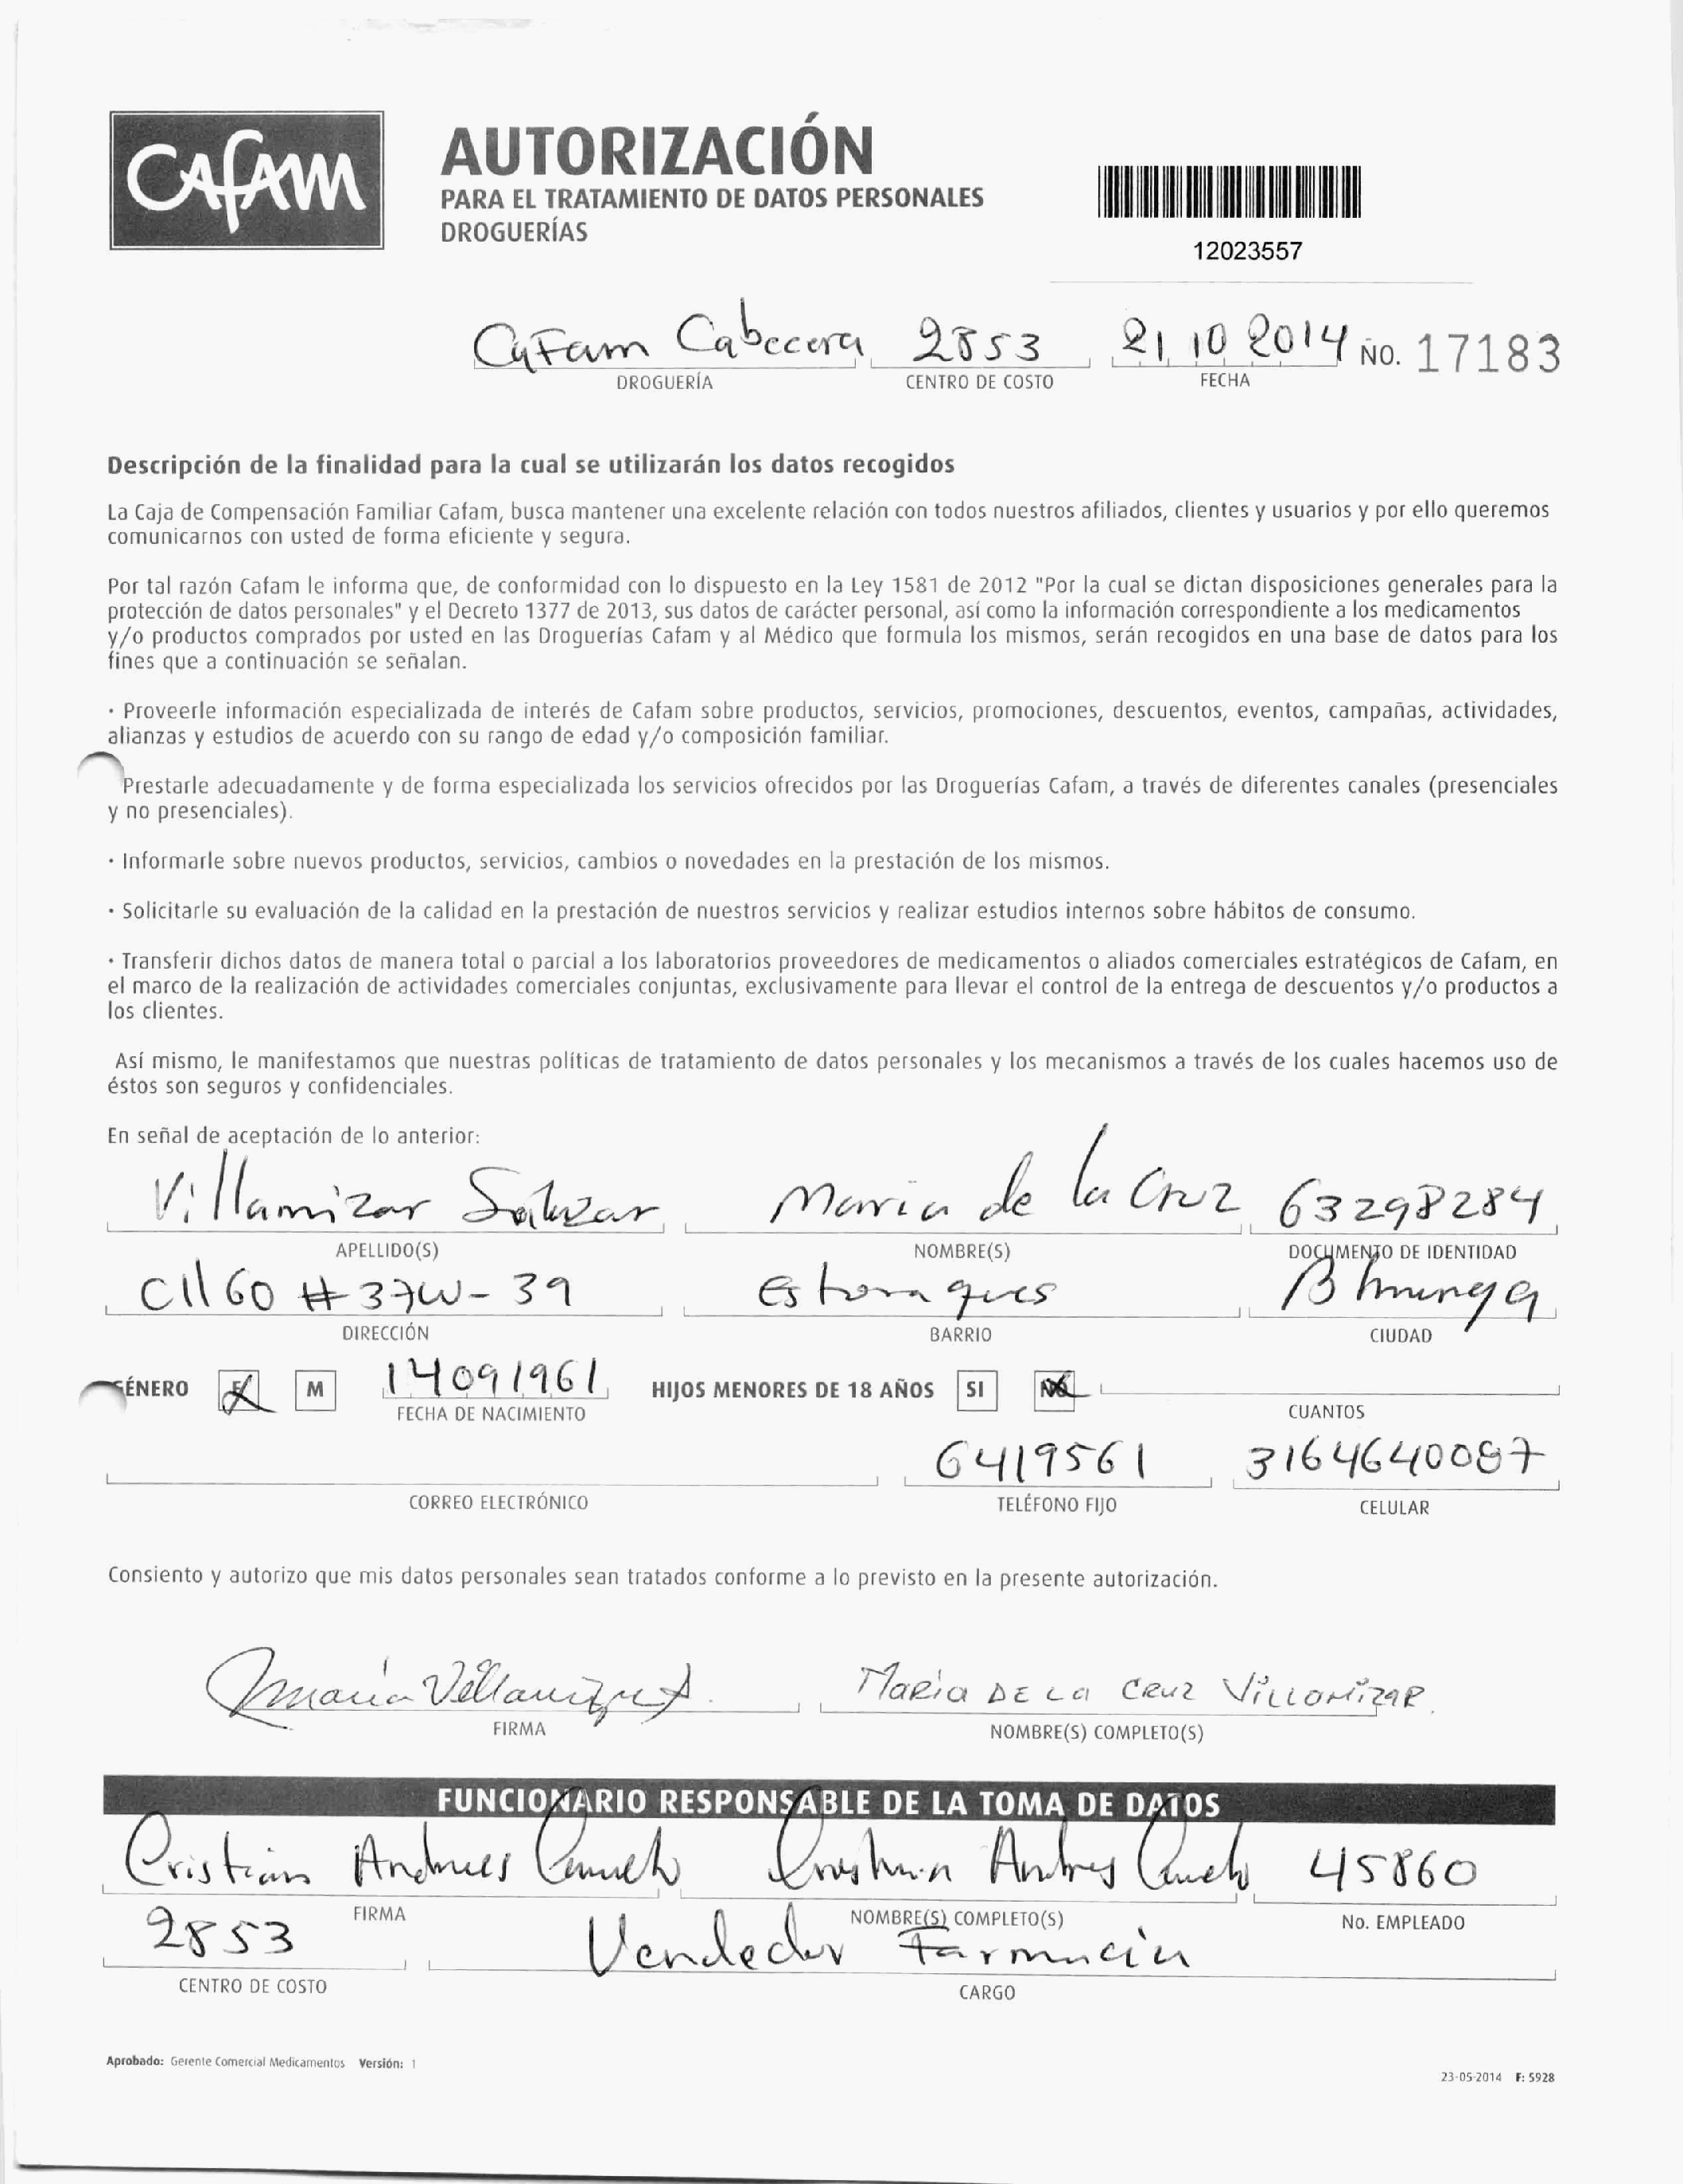 CAFAM
AUTORIZACIÓN
PARA EL TRATAMIENTO DE DATOS PERSONALES
DROGUERÍAS
12023557
Cafam Cabecera 2853 21 10 2014 No. 17183
DROGUERÍA CENTRO DE COSTO FECHA
Descripción de la finalidad para la cual se utilizarán los datos recogidos
La Caja de Compensación Familiar Cafam, busca mantener una excelente relación con todos nuestros afiliados, clientes y usuarios y por ello queremos
comunicarnos con usted de forma eficiente y segura.
Por tal razón Cafam le informa que, de conformidad con lo dispuesto en la Ley 1581 de 2012 "Por la cual se dictan disposiciones generales para la
protección de datos personales" y el Decreto 1377 de 2013, sus datos de carácter personal, así como la información correspondiente a los medicamentos
y/o productos comprados por usted en las Droguerías Cafam y al Médico que formula los mismos, serán recogidos en una base de datos para los
fines que a continuación se señalan.
· Proveerle información especializada de interés de Cafam sobre productos, servicios, promociones, descuentos, eventos, campañas, actividades,
alianzas y estudios de acuerdo con su rango de edad y/o composición familiar.
Prestarle adecuadamente y de forma especializada los servicios ofrecidos por las Droguerías Cafam, a través de diferentes canales (presenciales
y no presenciales).
· Informarle sobre nuevos productos, servicios, cambios o novedades en la prestación de los mismos.
· Solicitarle su evaluación de la calidad en la prestación de nuestros servicios y realizar estudios internos sobre hábitos de consumo.
· Transferir dichos datos de manera total o parcial a los laboratorios proveedores de medicamentos o aliados comerciales estratégicos de Cafam, en
el marco de la realización de actividades comerciales conjuntas, exclusivamente para llevar el control de la entrega de descuentos y/o productos a
los clientes.
Así mismo, le manifestamos que nuestras políticas de tratamiento de datos personales y los mecanismos a través de los cuales hacemos uso de
éstos son seguros y confidenciales.
En señal de aceptación de lo anterior:
Villamizar Salazar Maria de la Cruz 63298284
APELLIDO(S) NOMBRE(S) DOCUMENTO DE IDENTIDAD
Cll 60 # 37W-39 Estoraques B/manga
DIRECCIÓN BARRIO CIUDAD
GÉNERO F M 14091961 HIJOS MENORES DE 18 AÑOS SI NO
FECHA DE NACIMIENTO CUANTOS
6419561 3164640087
CORREO ELECTRÓNICO TELÉFONO FIJO CELULAR
Consiento y autorizo que mis datos personales sean tratados conforme a lo previsto en la presente autorización.
María Villamizar MARIA DE LA CRUZ VILLAMIZAR
FIRMA NOMBRE(S) COMPLETO(S)
FUNCIONARIO RESPONSABLE DE LA TOMA DE DATOS
Cristian Andres Cristian Andres 45860
FIRMA NOMBRE(S) COMPLETO(S) No. EMPLEADO
2853 Vendedor Farmacia
CENTRO DE COSTO CARGO
Aprobado: Gerente Comercial Medicamentos Versión: 1
23-05-2014 F: 5928